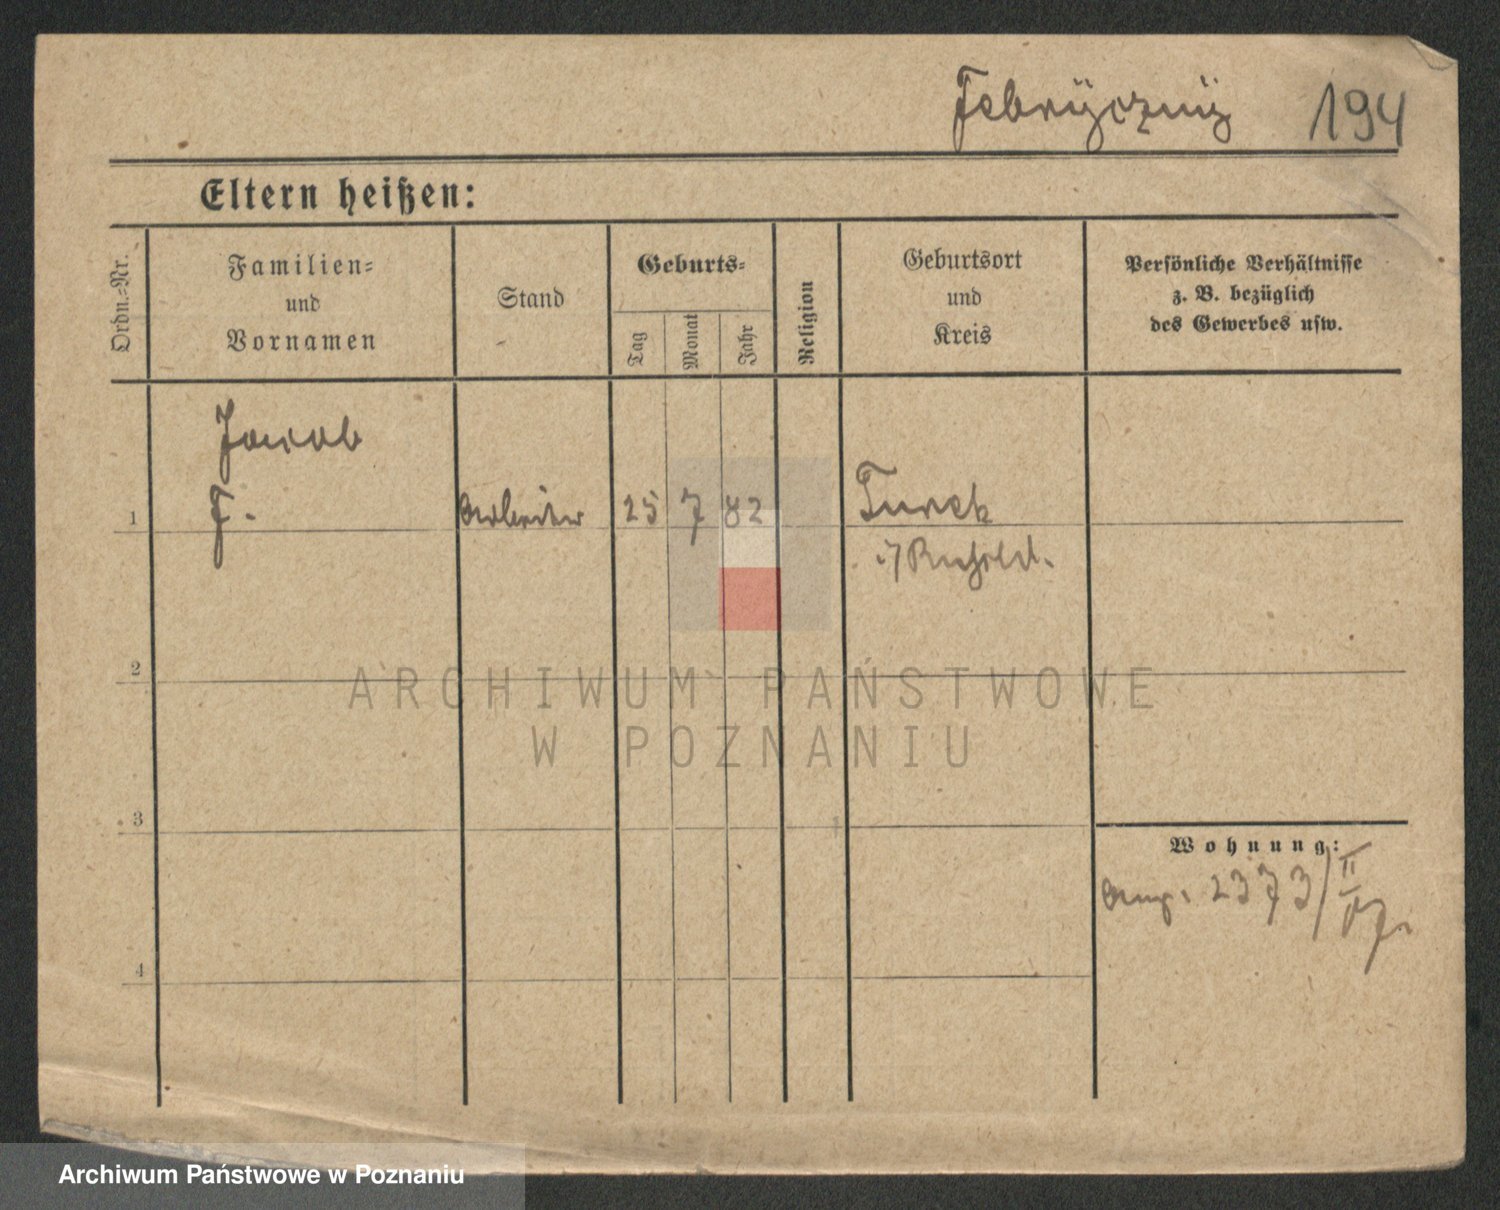 Febryczny 194
Eltern heißen:
Ordn.-Nr.
Familien-
und
Vornamen
Stand
Geburts-
Tag
Monat
Jahr
Religion
Geburtsort
und
Kreis
Persönliche Verhältnisse
z. B. bezüglich
des Gewerbes usw.
Jacob
1 F. Arbeiter 25 7 82 Turek
i/ Rußld.
2
3
4
Wohnung:
2373/II
07.
ARCHIWUM PAŃSTWOWE
W POZNANIU
Archiwum Państwowe w Poznaniu